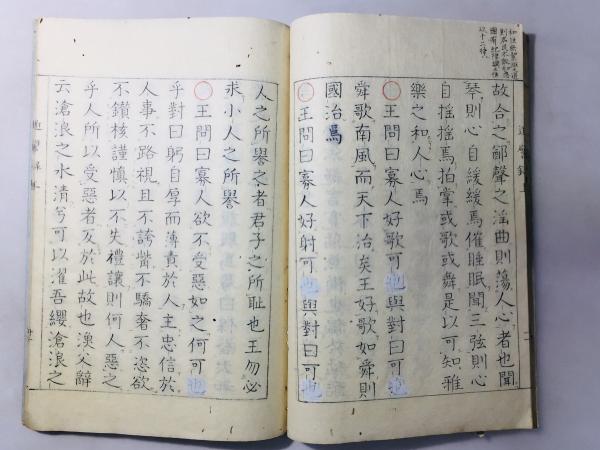 故合之鄙聲之淫曲則蕩人心者也聞
琴則心自緩緩焉催睡眠聞三弦則心
自搖搖焉拍掌或歌或舞是以可知雅
樂之和人心焉
王問曰寡人好歌可也與對曰可也
舜歌南風而天下治矣王好歌如舜則
國治焉
王問曰寡人好射可也與對曰可也
人之所譽之者君子之所恥也王勿必
求小人之所譽
王問曰寡人欲不受惡如之何可也
乎對曰躬自厚而薄責於人主忠信於
人事不路視且不誇訾不驕奢不恣欲
不鑽核謹慎以不失禮讓則何人惡之
乎人所以受惡者反於此故也漁父辭
云滄浪之水清兮可以濯吾纓滄浪之